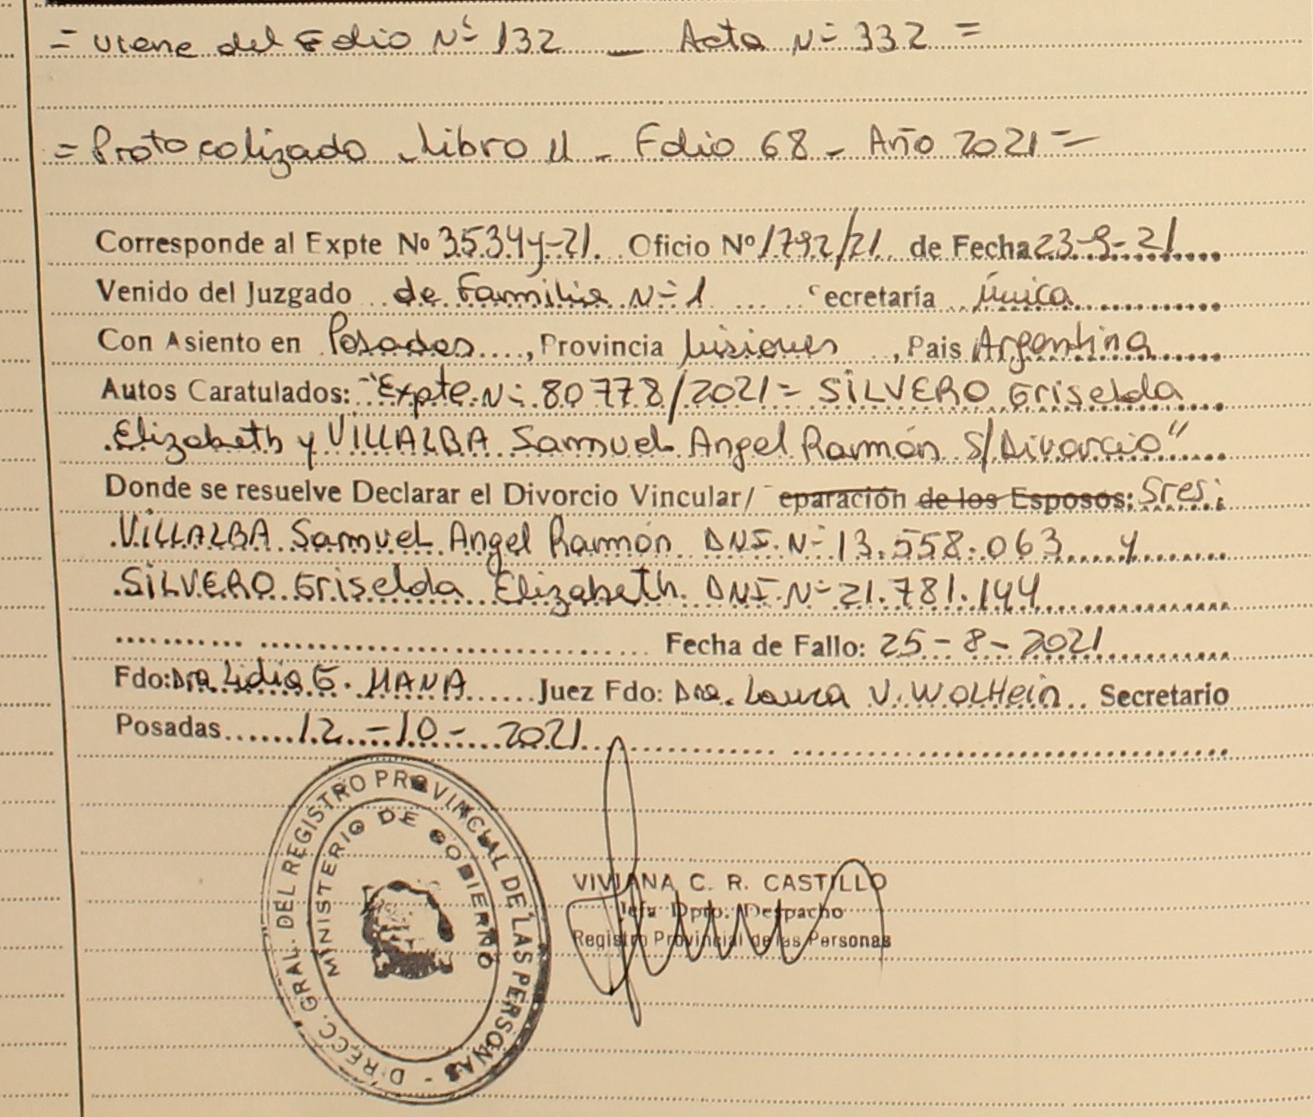 = Viene del Folio Nº 132 _ Acta Nº 332 =
= Protocolizado - Libro II - Folio 68 - Año 2021 =
Corresponde al Expte No 3534y-21. Oficio Nº 1792/21 de Fecha 23-9-21
Venido del Juzgado de Familia Nº 1 ecretaría Única
Con Asiento en Posadas, Provincia Misiones, Pais Argentina
Autos Caratulados: "Expte Nº 80778/2021= SILVERO Griselda
Elizabeth y VILLALBA Samuel Angel Ramón S/Divorcio"
Donde se resuelve Declarar el Divorcio Vincular/ eparación de los Esposos: Sres:
VILLALBA Samuel Angel Ramón DNI Nº 13.558.063 y
SILVERO Griselda Elizabeth. DNI Nº 21.781.144
Fecha de Fallo: 25-8-2021
Fdo: Dra. Lidia E. MANA Juez Fdo: Dra. Laura V. WOLHein Secretario
Posadas 12-10-2021
DIRECC. GRAL. DEL REGISTRO PROVINCIAL DE LAS PERSONAS -
MINISTERIO DE GOBIERNO
VIVIANA C. R. CASTILLO
Jefa Dpto. Despacho
Registro Provincial de las Personas